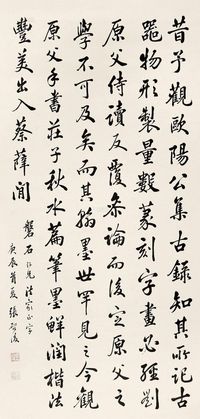 昔予觀歐陽公集古錄知其所記古
器物形製量數篆刻字畫必經劉
原父侍讀反覆参論而後定原父之
學不可及矣而其翰墨世罕見之今觀
原父手書莊子秋水篇筆墨鮮潤楷法
豐美出入蔡薛間
磐石仁兄法家正字
庚辰首夏